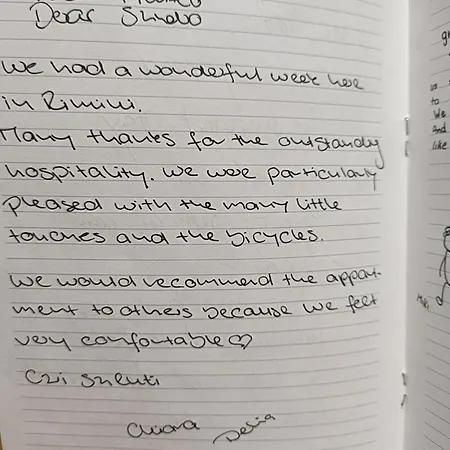 Dear
We had a wonderful week here
in Rimini.
Many thanks for the outstandig
hospitality. We were particularly
pleased with the many little
touches and the bicycles.
We would recommend the appart-
ment to others because we felt
very comfortable ♡
Chiara
gr
to
We
And
like